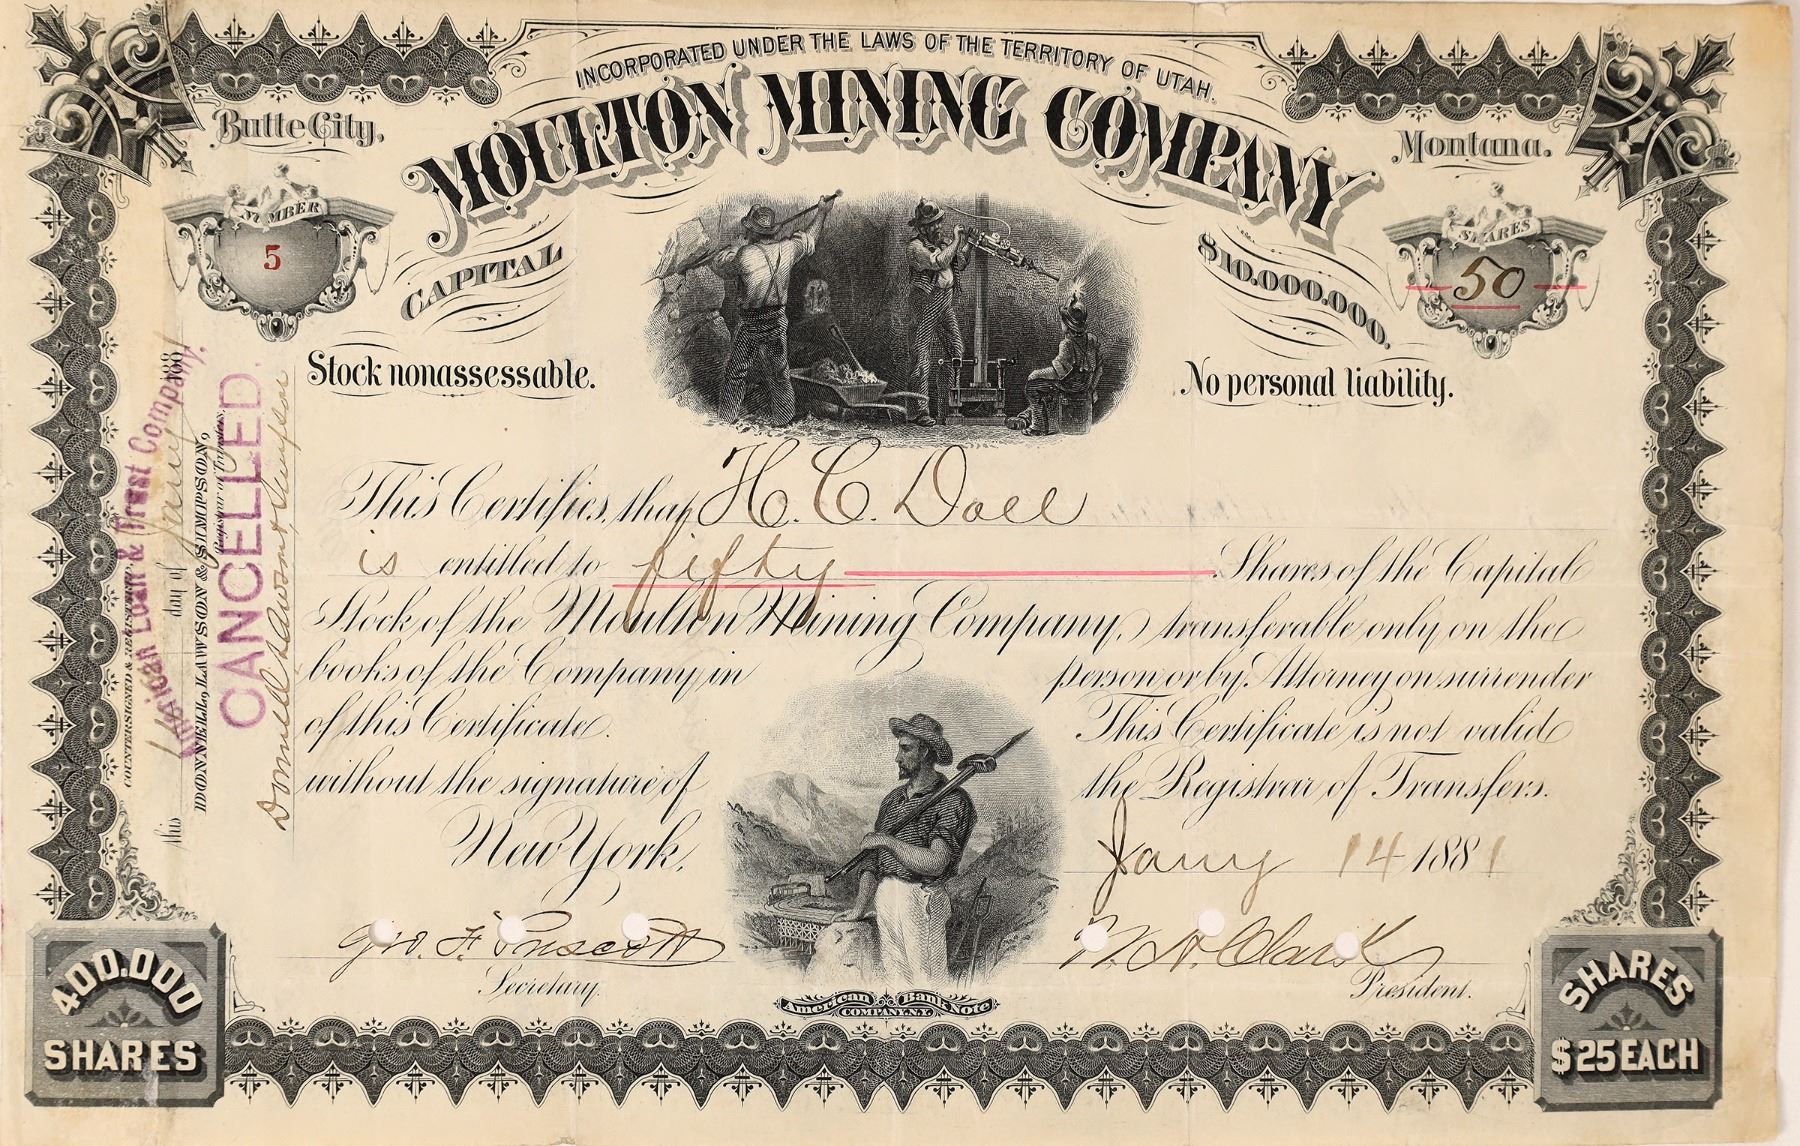 INCORPORATED UNDER THE LAWS OF THE TERRITORY OF UTAH.
Butte City,
MOULTON MINING COMPANY
Montana.
NUMBER
5
CAPITAL
$10.000.000.
SHARES
50
Stock nonassessable.
No personal liability.
This Certifies, that H. C. Doll
is entitled to fifty Shares of the Capital
Stock of the Moulton Mining Company, transferable only on the
books of the Company in person or by Attorney on surrender
of this Certificate. This Certificate is not valid
without the signature of the Registrar of Transfers.
New York, Jany 14 1881
Geo. F. Prescott
Secretary.
W. A. Clark
President.
American Bank Note
COMPANY. N.Y.
400.000
SHARES
SHARES
$25 EACH
COUNTERSIGNED & REGISTERED
this 14 day of Jany 1881
American Loan & Trust Company.
DONNELL, LAWSON & SIMPSON,
Registrar of Transfers.
CANCELLED.
Donnell Lawson & Simpson